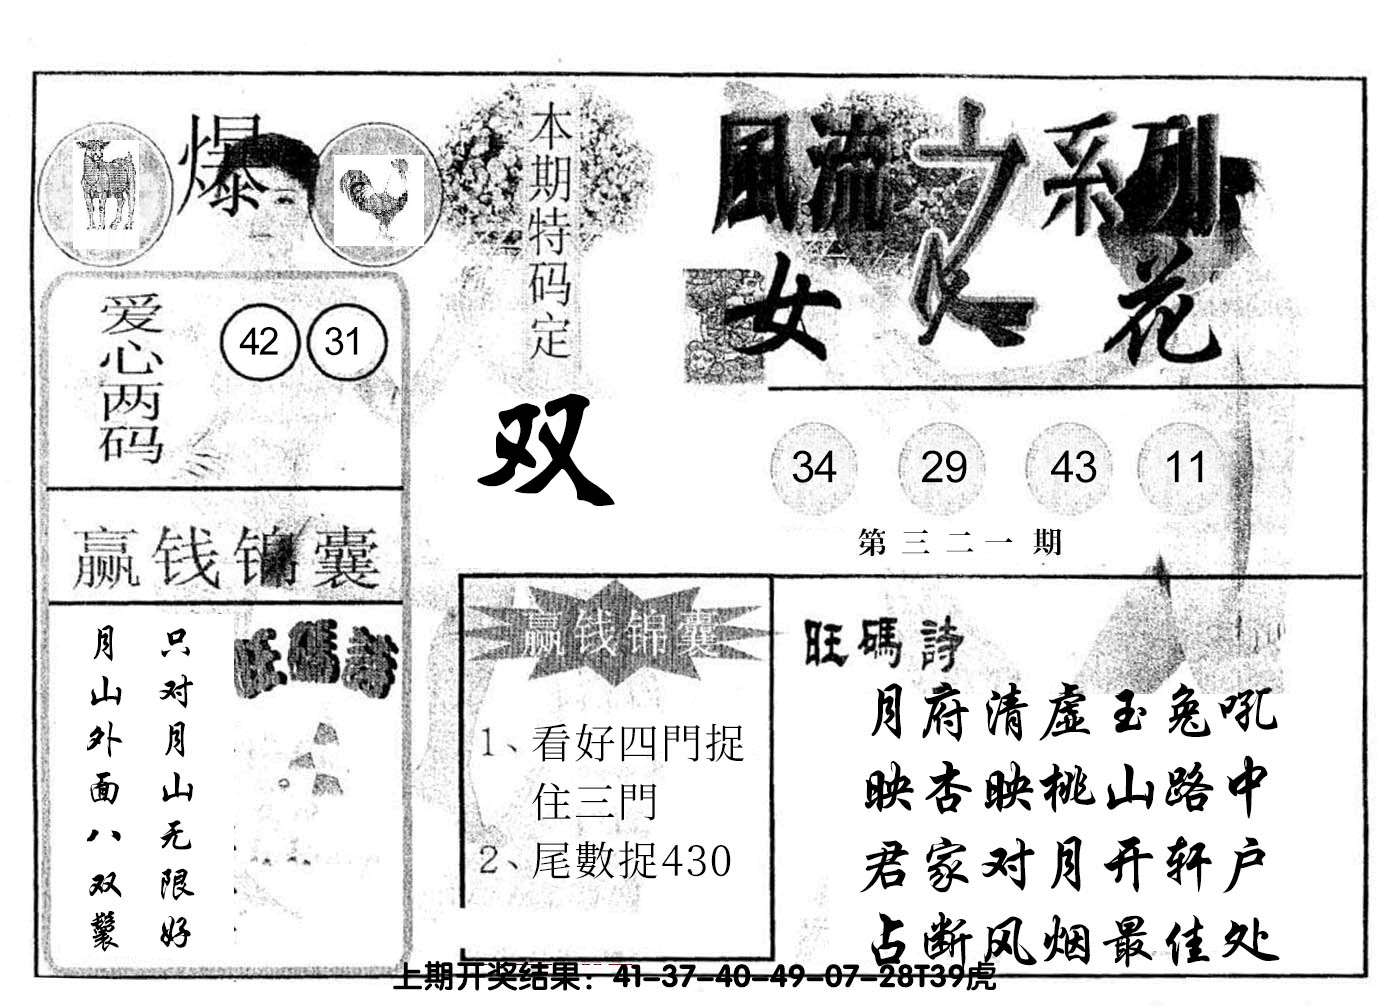 爆
本期特码定
双
風流之系列
女人花
爱心两码
42 31
34 29 43 11
第三二一期
赢钱锦囊
只对月山无限好
月山外面八双鬟
旺碼詩
赢钱锦囊
1、看好四門捉
住三門
2、尾數捉430
旺碼詩
月府清虚玉兔吼
映杏映桃山路中
君家对月开轩户
占断风烟最佳处
上期开奖结果：41-37-40-49-07-28T39虎